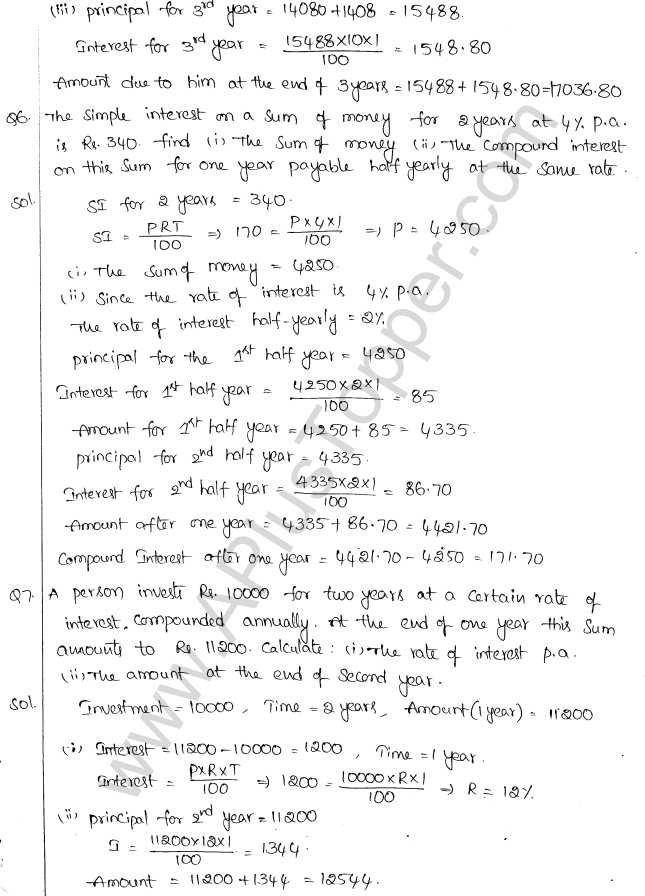 (iii) principal for 3rd year = 14080 + 1408 = 15488.
Interest for 3rd year = 15488×10×1/100 = 1548.80
Amount due to him at the end of 3years = 15488 + 1548.80 = 17036.80
Q6. The simple interest on a sum of money for 2 years at 4% p.a.
is Rs. 340. find (i) The sum of money (ii) The compound interest
on this sum for one year payable half yearly at the same rate.
Sol. SI for 2 years = 340.
SI = PRT/100 => 170 = P×4×1/100 => P = 4250.
(i) The sum of money = 4250.
(ii) Since the rate of interest is 4% p.a.
The rate of interest half-yearly = 2%
principal for the 1st half year = 4250
Interest for 1st half year = 4250×2×1/100 = 85
Amount for 1st half year = 4250 + 85 = 4335.
principal for 2nd half year = 4335.
Interest for 2nd half year = 4335×2×1/100 = 86.70
Amount after one year = 4335 + 86.70 = 4421.70
Compound Interest after one year = 4421.70 - 4250 = 171.70
Q7. A person invests Rs. 10000 for two years at a certain rate of
interest, compounded annually. At the end of one year this sum
amounts to Rs. 11200. Calculate: (i) The rate of interest p.a.
(ii) The amount at the end of second year.
Sol. Investment = 10000, Time = 2 years, Amount (1 year) = 11200
(i) Interest = 11200 - 10000 = 1200, Time = 1 year.
Interest = P×R×T/100 => 1200 = 10000×R×1/100 => R = 12%
(ii) principal for 2nd year = 11200
I = 11200×12×1/100 = 1344
Amount = 11200 + 1344 = 12544.
www.APlusTopper.com